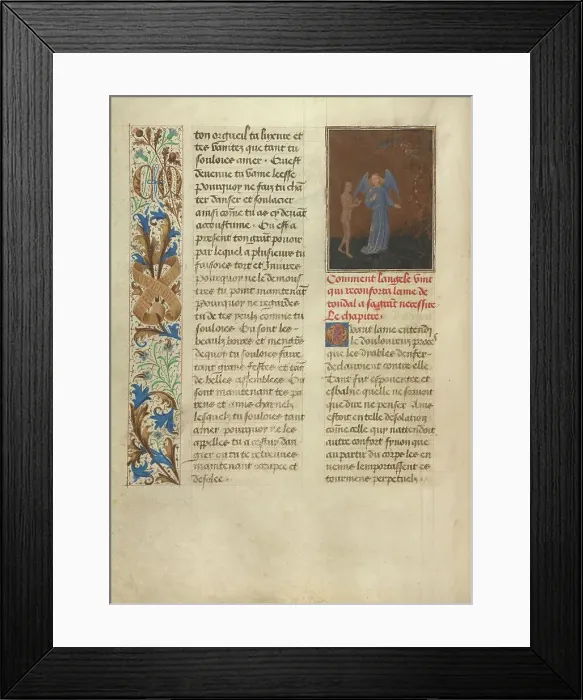 ton orgueil ta luxure et
tes vanitez que tant tu
souloies amer. Ou est
devenue ta vaine leesse
Pourquoy ne fais tu chan
ter danser et soulacier
ainsi comme tu as cy devant
accoustume. Ou est a
present ton grant pouoir
par lequel a plusieurs tu
faisoies tort et Iniures
Pourquoy ne le demous
tres tu point maintenant
Pourquoy ne regardes
tu de tes yeulx comme tu
souloies. Ou sont les
beaulx boires et mengiers
de quoy tu souloies faire
tant grans festes et
de belles assemblees. Ou
sont maintenant tes pa
rens et amis charnelz
lesquelz tu souloies tant
amer pourquoy ne les
appelles tu a cestui dan
gier ou tu te retreuues
maintenant occupee et
desolee.
Comment l'angele vint
qui reconforta lame de
tondal a sa grant necessite
Le chapitre.
Quant lame entendy
le douloureux proces
que les diables denfer
declairoient contre elle
Tant fut espouentee et
esbahie quelle ne scauoit
que dire ne penser. Ains
estoit en telle desolation
comme celle qui nattendoit
autre confort synon que
au partir du corps les en
nemis lemportassent es
tourmens perpetuelz.